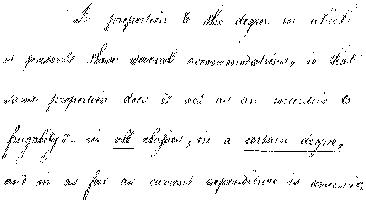 In proportion to the degree in which
it presents these several accommodations, in that
same proportion does it act as an incentive to
frugality:- in all classes, in a certain degree,
and in as far as current expenditure is concerned